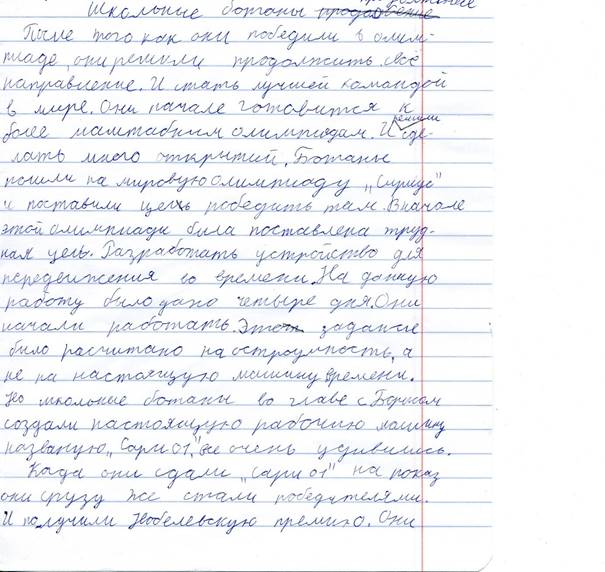 Школьные ботаны продолжение
После того как они победили в олим-
пиаде, они решили продолжить своё
направление. И стать лучшей командой
в мире. Они начале готовится к
более маштабним олимпиадам. И решили сде-
лать много открытий. Ботаны
пошли на мировую олимпиаду „Сириус"
и поставили цель победить там. Вначале
этой олимпиади била поставлена труд-
ная цель. Разработать устройство для
передвижения во времени. На данную
работу было дано четыре дня. Они
начали работать. Это задание
било расчитано на остроумность, а
не на настоящую машину времени.
Но школьные ботаны во главе с
создали настоящую рабочию машину
названую „Сари 01" все очень удивились.
Када они сдали „Сари 01" на показ
они сразу же стали победителями.
И получили Нобелевскую премию. Они